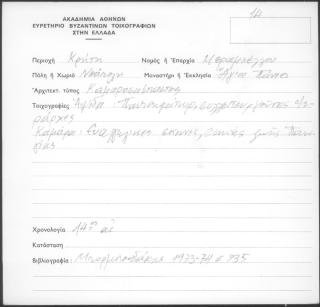 14
ΑΚΑΔΗΜΙΑ ΑΘΗΝΩΝ
ΕΥΡΕΤΗΡΙΟ ΒΥΖΑΝΤΙΝΩΝ ΤΟΙΧΟΓΡΑΦΙΩΝ
ΣΤΗΝ ΕΛΛΑΔΑ
Περιοχή Κρήτη Νομός ή Επαρχία Μεραμβέλλου
Πόλη ή Χωριό Νεάπολη Μοναστήρι ή Εκκλησία Άγιοι Πάντες
Αρχιτεκτ. τύπος Καμαροσκέπαστος
Τοιχογραφίες Αψίδα: Παντοκράτωρ, συλλειτουργούντες
ιεράρχες
Καμάρα: Ευαγγελικές σκηνές, σκηνές ζωής Πανα-
γίας
Χρονολογία 14ος αι
Κατάσταση
Βιβλιογραφία: Μπορμπουδάκης 1973-74 σ 935